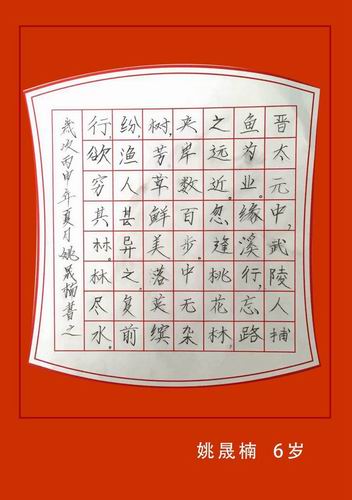 晋太元中,武陵人捕
鱼为业。缘溪行,忘路
之远近。忽逢桃花林,
夹岸数百步。中无杂
树,芳草鲜美,落英缤
纷,渔人甚异之。复前
行,欲穷其林。林尽水。
岁次丙申年夏月姚晟楠書之
姚晟楠 6岁